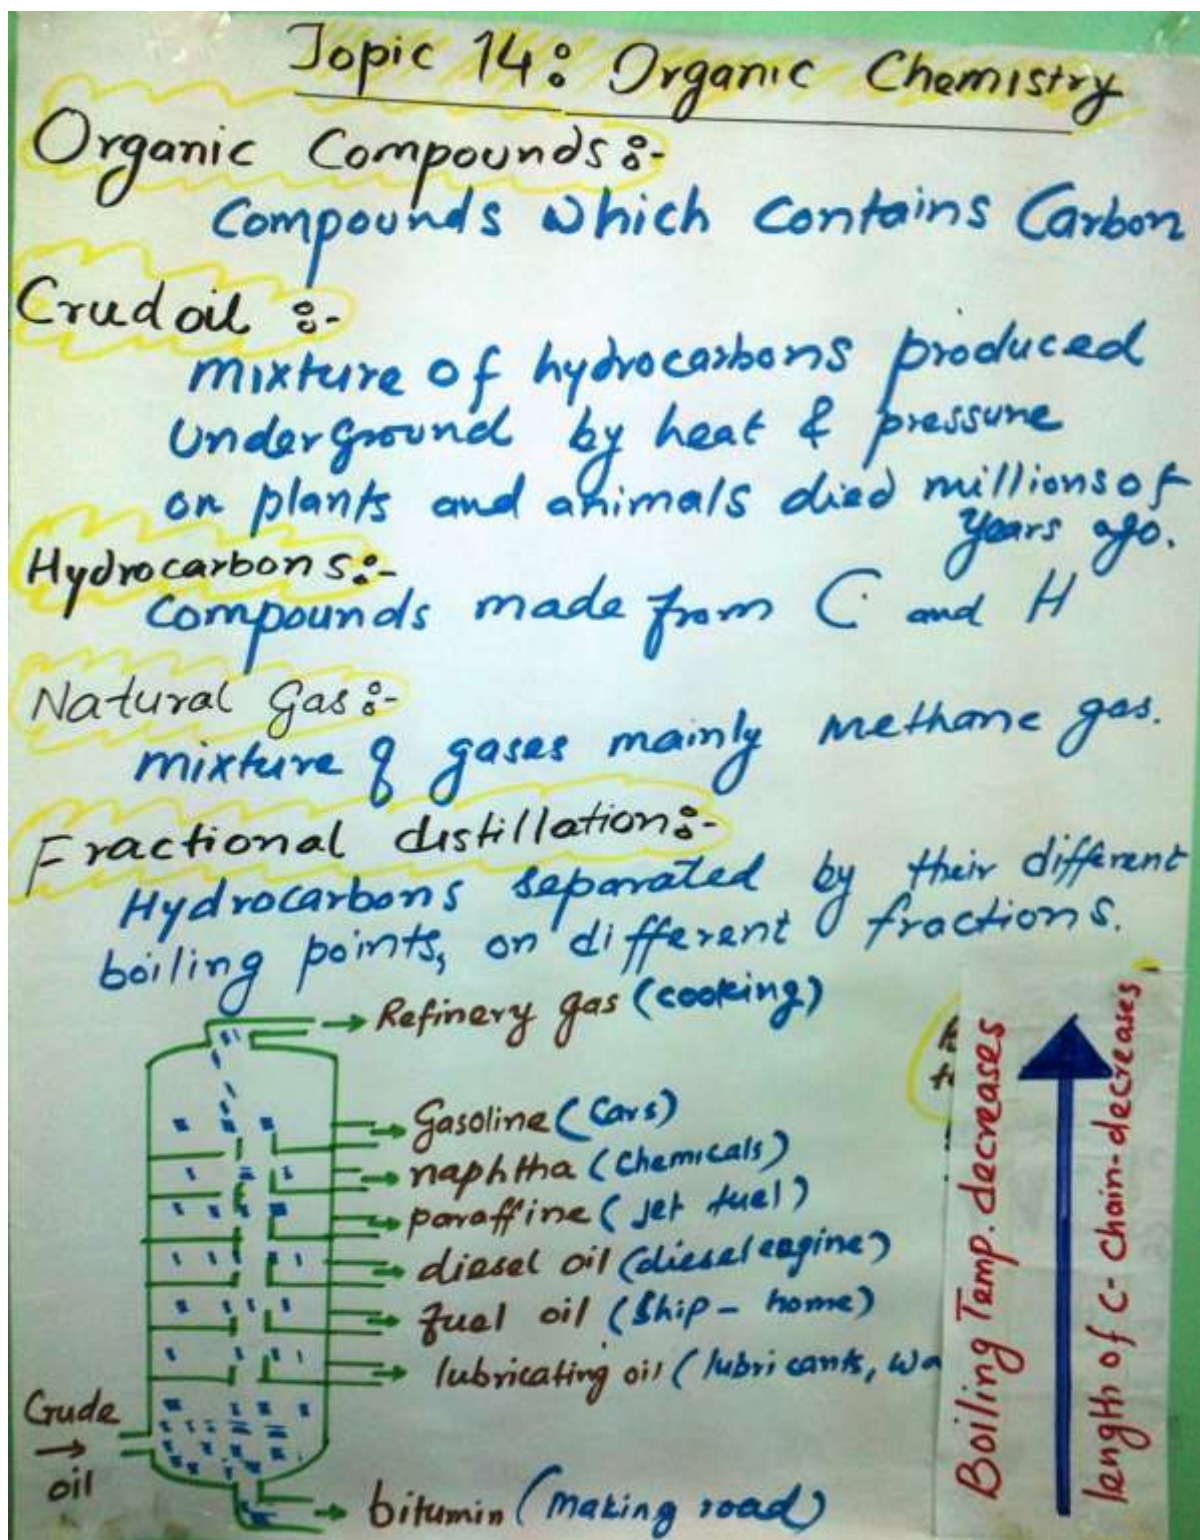 Topic 14: Organic Chemistry
Organic Compounds:-
Compounds which contains Carbon
Crudoil :-
mixture of hydrocarbons produced
Underground by heat & pressure
on plants and animals died millions of
years ago.
Hydrocarbons:-
Compounds made from C and H
Natural Gas:-
mixture of gases mainly methane gas.
Fractional distillation:-
Hydrocarbons separated by their different
boiling points, on different fractions.
Refinery gas (cooking)
Gasoline (Cars)
naphtha (Chemicals)
paraffine (jet fuel)
diesel oil (diesel engine)
fuel oil (Ship - home)
lubricating oil (lubricants, wa
Crude
oil
bitumin (making road)
Boiling Temp. decreases
length of C- Chain-decreases